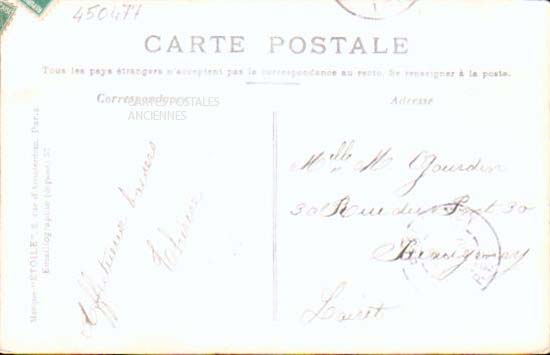 450477
CARTE POSTALE
Tous les pays étrangers n'acceptent pas la correspondance au recto. Se renseigner à la poste.
Correspondance
Adresse
CARTES POSTALES
ANCIENNES
Marque "ETOILE", rue d'Amsterdam, Paris
Emaillographie
Affectueux baisers
Mlle M Gourdin
30 Rue du Pont 30
Beaugency
Loiret